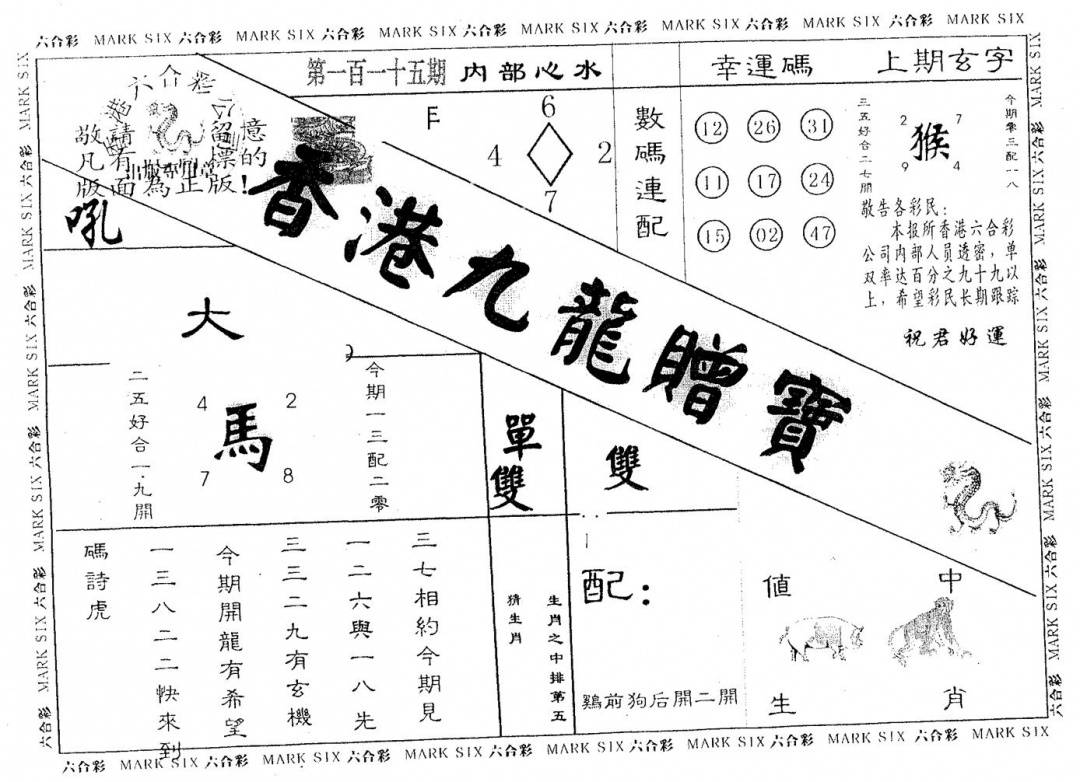 六合彩 MARK SIX 六合彩 MARK SIX 六合彩 MARK SIX 六合彩 MARK SIX 六合彩 MARK SIX 六合彩 MARK SIX 六合彩 MARK SIX
六合彩
敬請留意
凡有標的
版面為正版!
吼
第一百一十五期 内部心水
6
4 2
7
數碼連配
幸運碼
12 26 31
11 17 24
15 02 47
上期玄字
今期零三配一八
2 7
猴
9 4
三五好合二七開
敬告各彩民:
本报所香港六合彩
公司内部人员透密,单
双率达百分之九十九以
上,希望彩民长期跟踪
祝君好運
香港九龍贈寶
大
今期一三配二零
4 2
馬
7 8
二五好合一.九開
單雙
雙
三七相約今期見
一二六與一八先
三三二九有玄機
今期開龍有希望
一三八二二快來到
碼詩虎
生肖之中排第五
猜生肖
配:
鷄前狗后開二開
值 中
生 肖
六合彩 MARK SIX 六合彩 MARK SIX 六合彩 MARK SIX 六合彩 MARK SIX 六合彩 MARK SIX 六合彩 MARK SIX 六合彩 MARK SIX